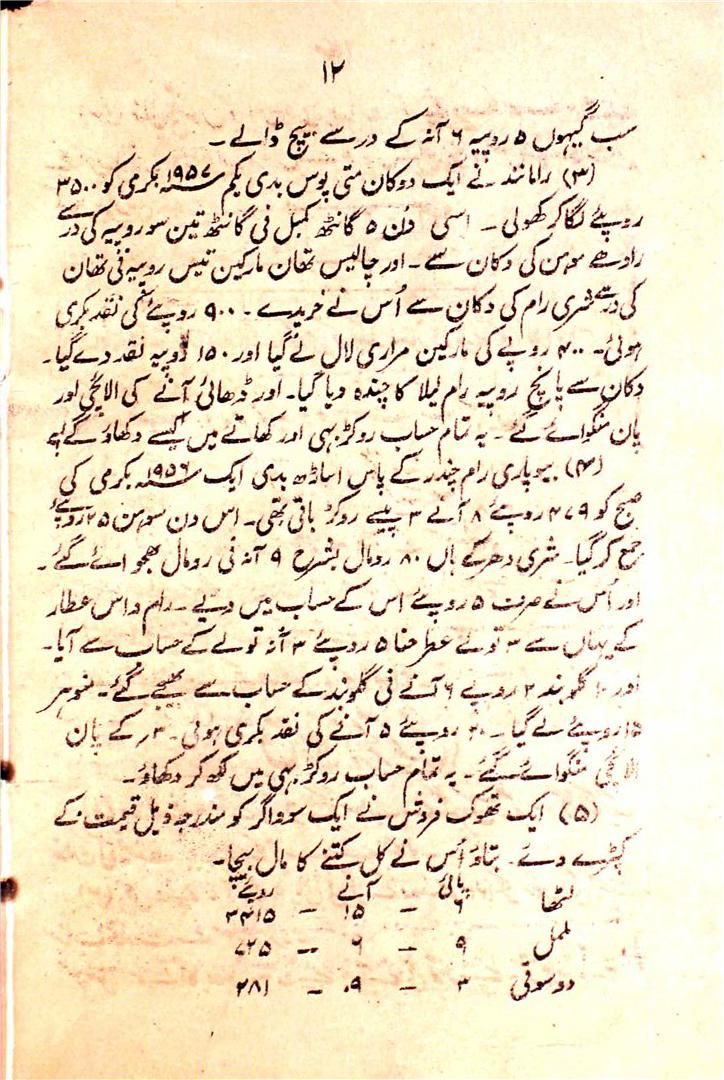 ۱۲
سب گیہوں ۵ روپیہ ۶ آنہ کے در سے بیچ ڈالے۔
(۳) رامانند نے ایک دوکان متی پوس بدی یکم سنہ ۱۹۵۷ بکرمی کو ۳۵۰۰
روپئے لگا کر کھولی۔ اسی دن ۵ گانٹھ کمبل فی گانٹھ تین سو روپیہ کی در سے
رادھے موہن کی دکان سے۔ اور چالیس تھان مارکین تیس روپیہ فی تھان
کی در سے شری رام کی دکان سے اُس نے خریدے۔ ۹۰۰ روپئے کی نقد بکری
ہوئی۔ ۴۰۰ روپے کی مارکین مراری لال لے گیا اور ۱۵۰ روپیہ نقد دے گیا۔
دکان سے پانچ روپیہ رام لیلا کا چندہ دیا گیا۔ اور ڈھائی آنے کی الائچی اور
پان منگوائے گئے۔ یہ تمام حساب روکڑ بہی اور کھاتے میں کیسے دکھاؤ گے؟
(۴) بیوپاری رام چندر کے پاس اساڑھ بدی ایک سنہ ۱۹۵۶ بکرمی کی
صبح کو ۴۷۹ روپئے ۸ آنے ۳ پیسے روکڑ باقی تھی۔ اس دن سوہن ۲۵ روپئے
جمع کر گیا۔ شری دھر کے ہاں ۸۰ رومال بشرح ۹ آنہ فی رومال بھجوائے گئے۔
اور اُس نے صرف ۵ روپئے اس کے حساب میں دیے۔ رام داس عطار
کے یہاں سے ۳ تولے عطر حنا ۵ روپئے ۳ آنہ تولے کے حساب سے آیا۔
اور ۱۰ گلوبند ۲ روپے ۶ آنے فی گلوبند کے حساب سے بھیجے گئے۔ منوہر
۱۵ روپئے لے گیا۔ ۲۰ روپئے ۵ آنے کی نقد بکری ہوئی۔ ۳؍ کے پان
الائچی منگوائے گئے۔ یہ تمام حساب روکڑ بہی میں لکھ کر دکھاؤ۔
(۵) ایک تھوک فروش نے ایک سوداگر کو مندرجہ ذیل قیمت کے
کپڑے دئے۔ بتاؤ اُس نے کل کتنے کا مال بیچا۔
پائی آنے روپئے
لٹھا ۶ – ۱۵ – ۳۴۱۵
ململ ۹ – ۶ – ۷۲۵
دوسوتی ۳ – ۰۹ – ۲۸۱